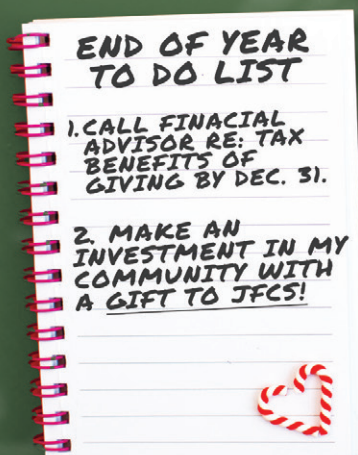 END OF YEAR
TO DO LIST
1. CALL FINACIAL
ADVISOR RE: TAX
BENEFITS OF
GIVING BY DEC. 31.
2. MAKE AN
INVESTMENT IN MY
COMMUNITY WITH
A GIFT TO JFCS!